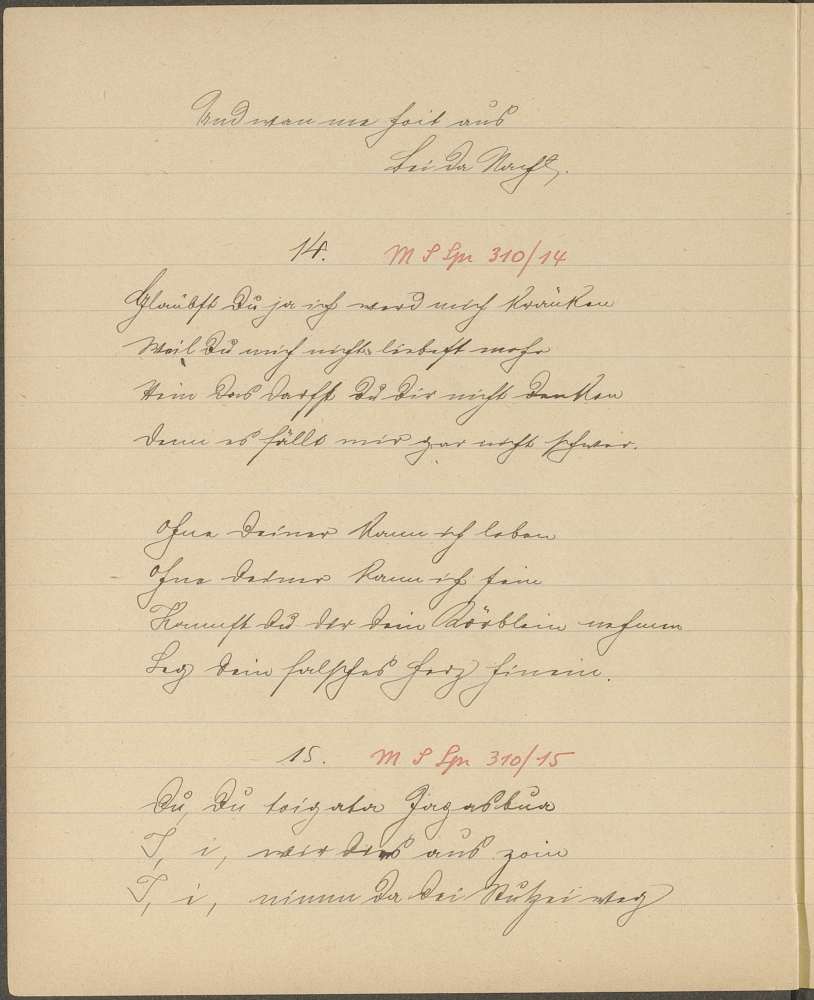 Und wan ma hoit aus
bei da Nacht.
14. M S Spr 310/14
Glaubst Du ja ich werd mich kränken
Weil Du mich nicht liebest mehr
Nein das darfst Du Dir nicht denken
Denn es fällt mir gar nicht schwer.
Ohne Deiner kann ich leben
Ohne Deiner kann ich sein
Kannst Du der dein Körblein nehmen
Leg dein falsches Herz hinein.
15. M S Spr 310/15
Du, Du Jagasbua
I, i, wir dirs aus zoin
I, i, nimm da dei Stutzei weg